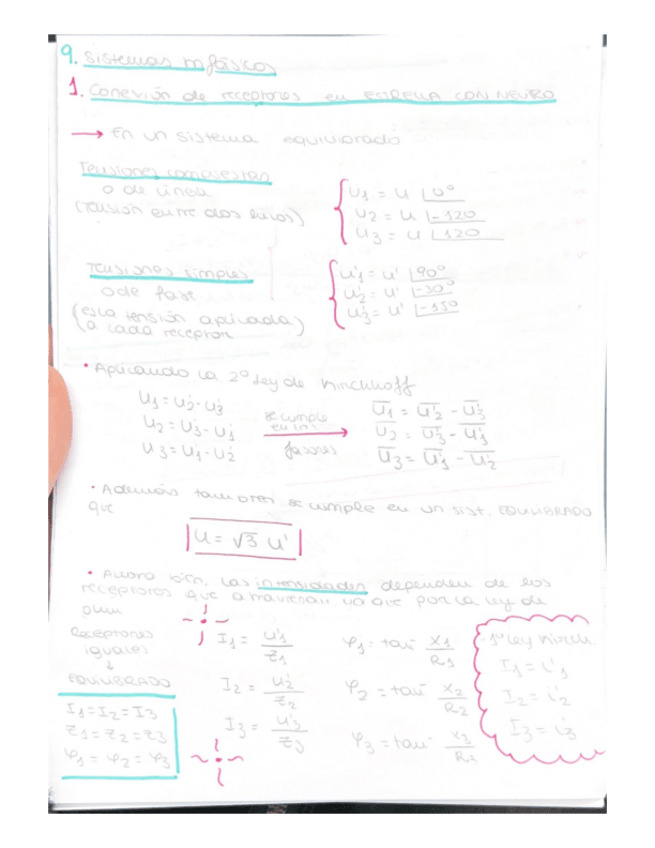 9. Sistemas trifásicos
1. Conexión de receptores en ESTRELLA CON NEUTRO
→ En un sistema equilibrado
Tensiones compuestas
o de línea
(tensión entre dos líneas)
U1 = U ∠0°
U2 = U ∠-120
U3 = U ∠120
Tensiones simples
o de fase
(es la tensión aplicada)
a cada receptor
U'1 = U' ∠90°
U'2 = U' ∠-30°
U'3 = U' ∠-150
• Aplicando la 2º Ley de Kirchhoff
U1 = U'2 - U'3
U2 = U'3 - U'1
U3 = U'1 - U'2
se cumple
en los
fasores
U̅1 = U̅'2 - U̅'3
U̅2 = U̅'3 - U̅'1
U̅3 = U̅'1 - U̅'2
• Además también se cumple en un sist. EQUILIBRADO
que
U = √3 U'
• Ahora bien, las intensidades dependen de los
receptores que atraviesan ya que por la ley de
Ohm
Receptores
iguales
↓
EQUILIBRADO
I1 = I2 = I3
Z1 = Z2 = Z3
φ1 = φ2 = φ3
I1 = U'1 / Z1
I2 = U'2 / Z2
I3 = U'3 / Z3
φ1 = tan⁻ X1 / R1
φ2 = tan⁻ X2 / R2
φ3 = tan⁻ X3 / R3
1º Ley Kirch
I1 = i'1
I2 = i'2
I3 = i'3